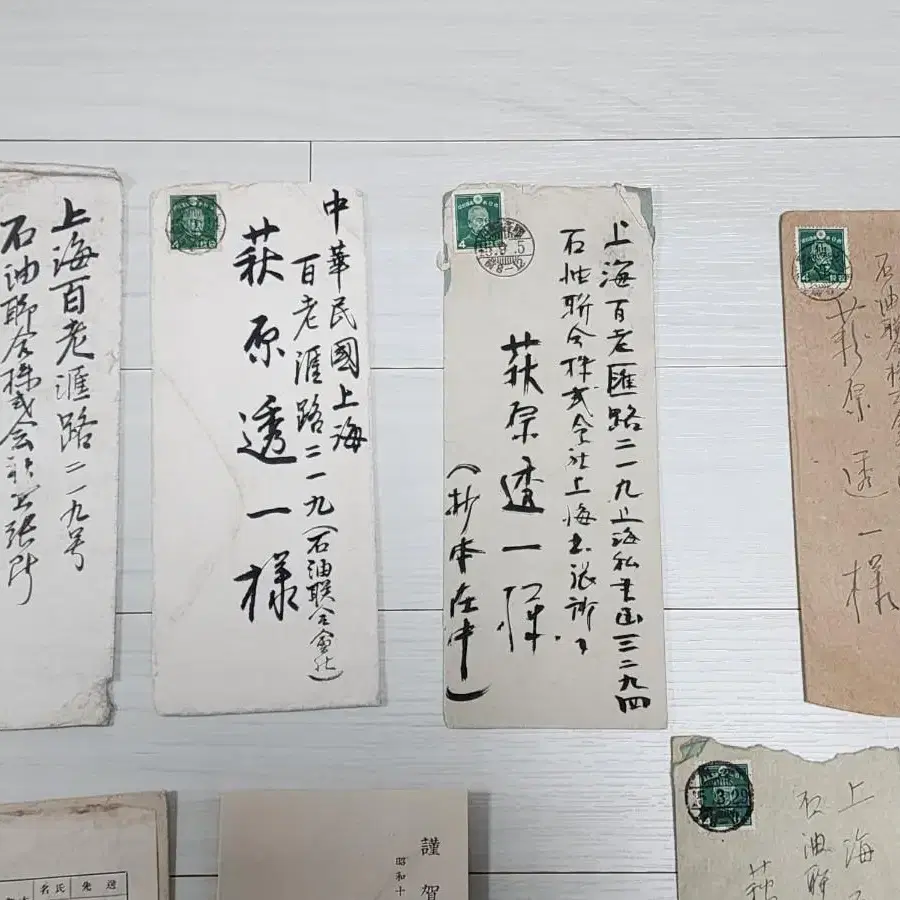 上海百老滙路二一九号
石油聯合株式会社出張所
中華民國上海
百老滙路二一九(石油联合會社)
萩原透一様
上海百老匯路二一九上海私書函三二九四
石油聯合株式会社上海出張所
萩原透一様
(抄本在中)
石油聯合株式会
萩原透一様
上海
石油聯
萩
謹賀
昭和十
名氏
先送